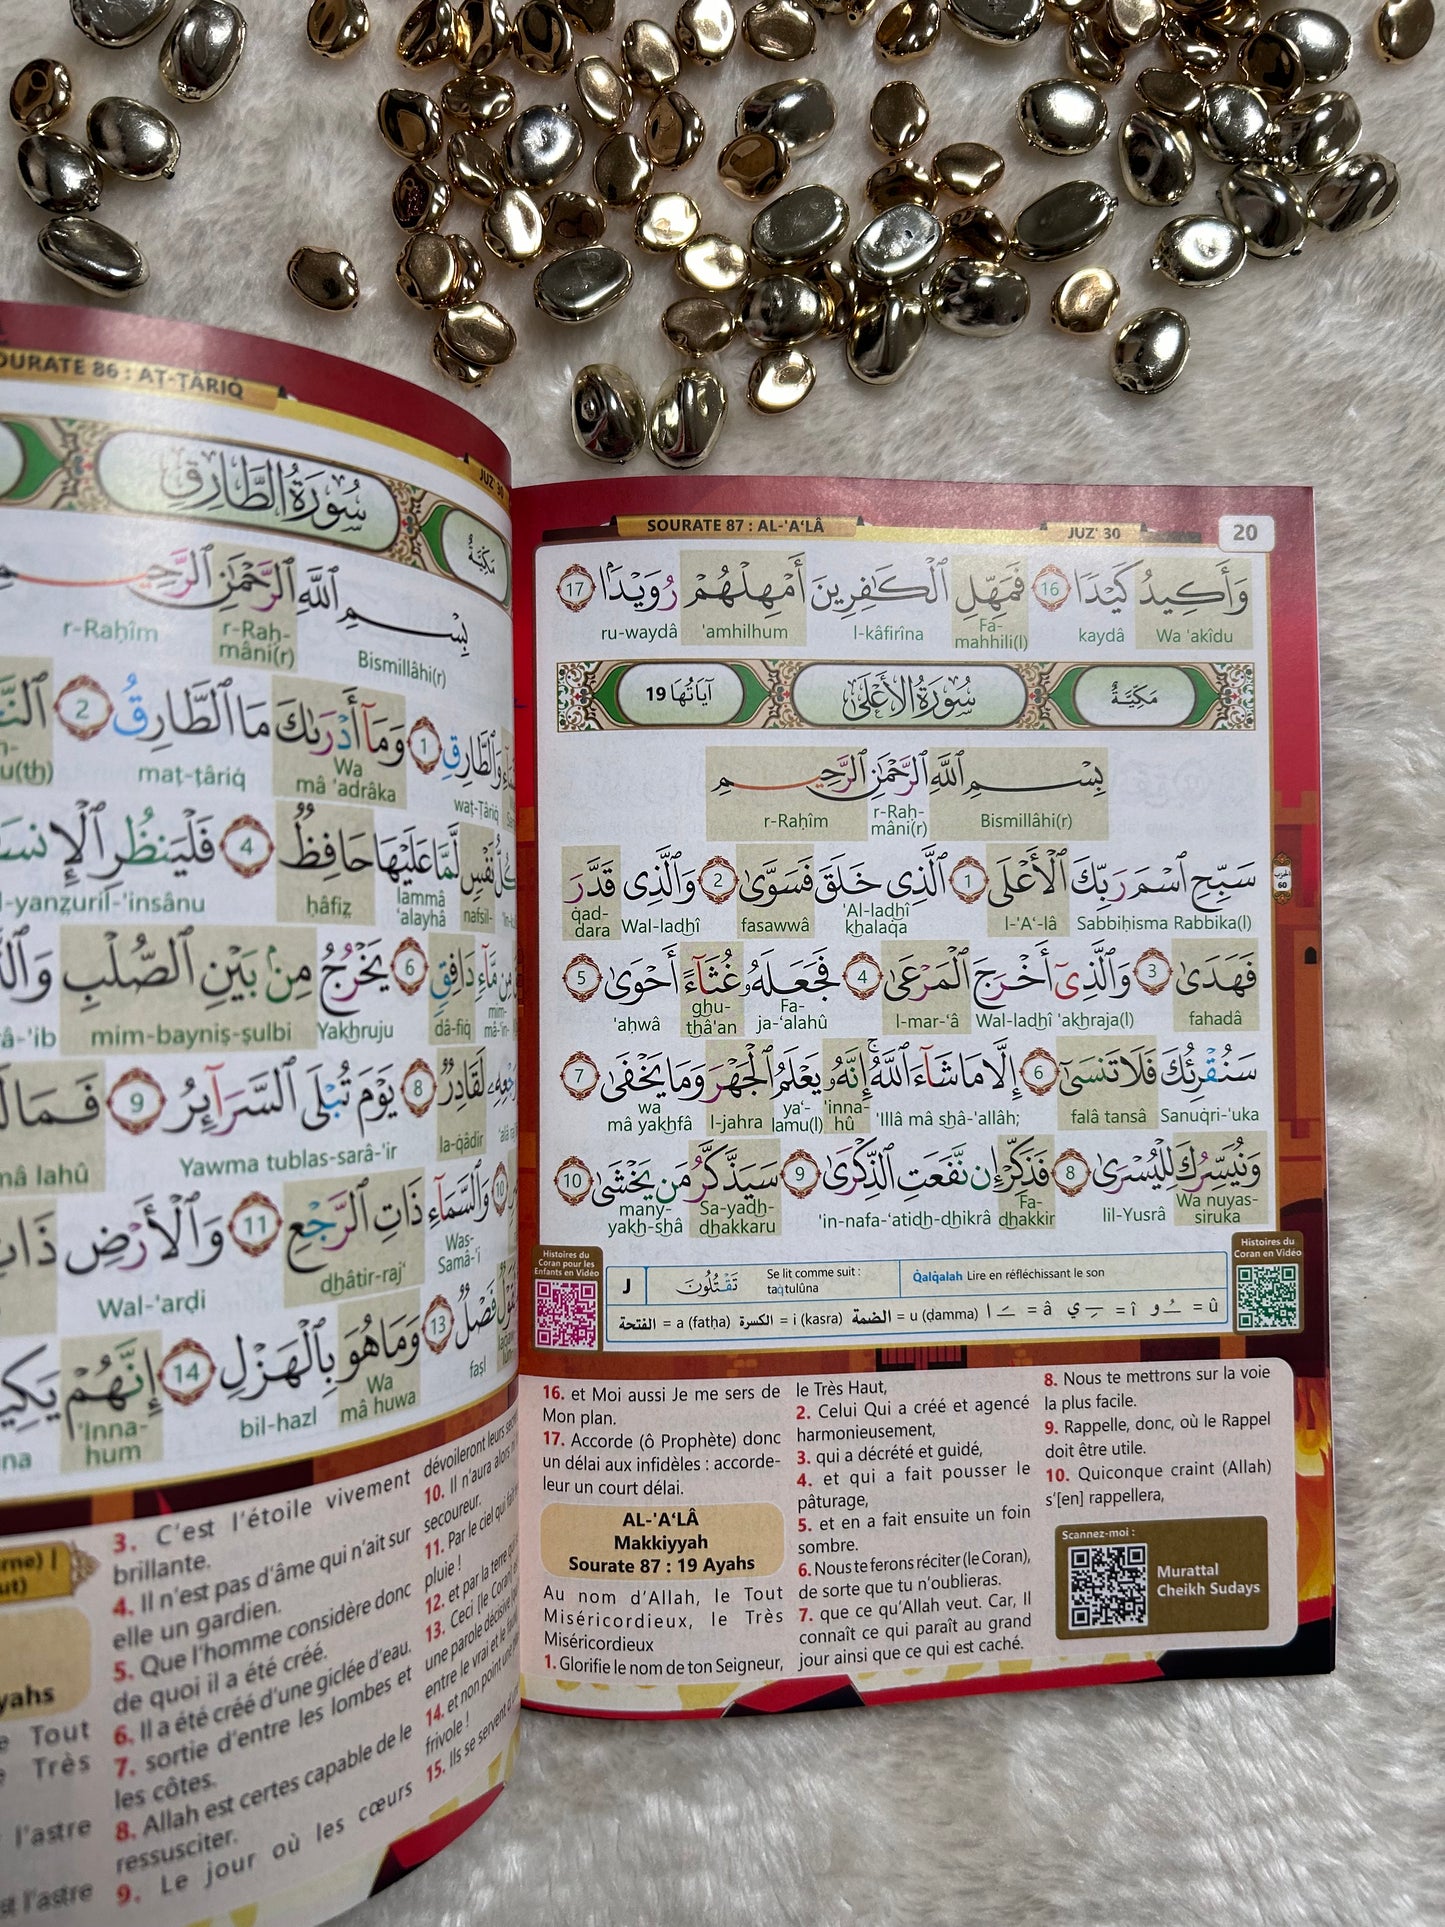 SOURATE 86 : AT-TÂRIQ
JUZ' 30
سُورَةُ الطَّارِقِ
مَكِّيَّةٌ
بِسْمِ ٱللَّهِ ٱلرَّحْمَٰنِ ٱلرَّحِيمِ
Bismillâhi(r) r-Raḥ-mâni(r) r-Raḥîm
وَٱلطَّارِقِ 1 وَمَآ أَدْرَىٰكَ مَا ٱلطَّارِقُ 2
waṭ-Ṭâriq Wa mâ 'adrâka maṭ-ṭâriq
نَفْسٍ لَّمَّا عَلَيْهَا حَافِظٌ 4 فَلْيَنظُرِ ٱلْإِنسَـ
nafsil- lammâ 'alayhâ ḥâfiẓ l-yanẓuril-'insânu
مِن مَّآءٍ دَافِقٍ 6 يَخْرُجُ مِنۢ بَيْنِ ٱلصُّلْبِ
mim-mâ-'in- dâ-fiq Yakhruju mim-bayniṣ-ṣulbi
لَقَادِرٌ 8 يَوْمَ تُبْلَى ٱلسَّرَآئِرُ 9
la-qâdir Yawma tublas-sarâ-'ir mâ lahû
10 وَٱلسَّمَآءِ ذَاتِ ٱلرَّجْعِ 11 وَٱلْأَرْضِ
Was-Samâ-'i dhâtir-raj' Wal-'arḍi
فَصْلٌ 13 وَمَا هُوَ بِٱلْهَزْلِ 14 إِنَّهُمْ
faṣl Wa mâ huwa bil-hazl 'Inna-hum
3. C'est l'étoile vivement
brillante.
4. Il n'est pas d'âme qui n'ait sur
elle un gardien.
5. Que l'homme considère donc
de quoi il a été créé.
6. Il a été créé d'une giclée d'eau.
7. sortie d'entre les lombes et
les côtes.
8. Allah est certes capable de le
ressusciter.
9. Le jour où les cœurs
dévoileront leurs
10. Il n'aura alors
secoureur.
11. Par le ciel qui
pluie !
12. et par la terre
13. Ceci [le Coran]
une parole décisive
entre le vrai et le
14. et non point une
frivole !
15. Ils se servent
SOURATE 87 : AL-'A‘LÂ
JUZ' 30
20
وَأَكِيدُ كَيْدًا 16 فَمَهِّلِ ٱلْكَٰفِرِينَ أَمْهِلْهُمْ رُوَيْدًۢا 17
Wa 'akîdu kaydâ Fa-mahhili(l) l-kâfirîna 'amhilhum ru-waydâ
مَكِّيَّةٌ سُورَةُ الأَعْلَى آيَاتُهَا 19
بِسْمِ ٱللَّهِ ٱلرَّحْمَٰنِ ٱلرَّحِيمِ
Bismillâhi(r) r-Raḥ-mâni(r) r-Raḥîm
سَبِّحِ ٱسْمَ رَبِّكَ ٱلْأَعْلَى 1 ٱلَّذِى خَلَقَ فَسَوَّىٰ 2 وَٱلَّذِى قَدَّرَ
الحزب 60
Sabbiḥisma Rabbika(l) l-'A‘-lâ 'Al-ladhî khalaqa fasawwâ Wal-ladhî qad-dara
فَهَدَىٰ 3 وَٱلَّذِىٓ أَخْرَجَ ٱلْمَرْعَىٰ 4 فَجَعَلَهُۥ غُثَآءً أَحْوَىٰ 5
fahadâ Wal-ladhî 'akhraja(l) l-mar-‘â Fa-ja-‘alahû ghu-thâ'an 'aḥwâ
سَنُقْرِئُكَ فَلَا تَنسَىٰٓ 6 إِلَّا مَا شَآءَ ٱللَّهُ ۚ إِنَّهُۥ يَعْلَمُ ٱلْجَهْرَ وَمَا يَخْفَىٰ 7
Sanuqri-'uka falâ tansâ 'Illâ mâ shâ-'allâh; 'inna-hû ya‘-lamu(l) l-jahra wa mâ yakhfâ
وَنُيَسِّرُكَ لِلْيُسْرَىٰ 8 فَذَكِّرْ إِن نَّفَعَتِ ٱلذِّكْرَىٰ 9 سَيَذَّكَّرُ مَن يَخْشَىٰ 10
Wa nuyas-siruka lil-Yusrâ Fa-dhakkir 'in-nafa-‘atidh-dhikrâ Sa-yadh-dhakkaru many-yakh-shâ
Histoires du
Coran pour les
Enfants en Vidéo
تَقْتُلُونَ Se lit comme suit :
taqtulûna
Qalqalah Lire en réfléchissant le son
الفتحة = a (fatḥa) الكسرة = i (kasra) الضمة = u (ḍamma) ـَ ا = â ـِ ي = î ـُ و = û
Histoires du
Coran en Vidéo
16. et Moi aussi Je me sers de
Mon plan.
17. Accorde (ô Prophète) donc
un délai aux infidèles : accorde-
leur un court délai.
AL-'A‘LÂ
Makkiyyah
Sourate 87 : 19 Ayahs
Au nom d'Allah, le Tout
Miséricordieux, le Très
Miséricordieux
1. Glorifie le nom de ton Seigneur,
le Très Haut,
2. Celui Qui a créé et agencé
harmonieusement,
3. qui a décrété et guidé,
4. et qui a fait pousser le
pâturage,
5. et en a fait ensuite un foin
sombre.
6. Nous te ferons réciter (le Coran),
de sorte que tu n'oublieras.
7. que ce qu'Allah veut. Car, Il
connaît ce qui paraît au grand
jour ainsi que ce qui est caché.
8. Nous te mettrons sur la voie
la plus facile.
9. Rappelle, donc, où le Rappel
doit être utile.
10. Quiconque craint (Allah)
s'[en] rappellera,
Scannez-moi :
Murattal
Cheikh Sudays